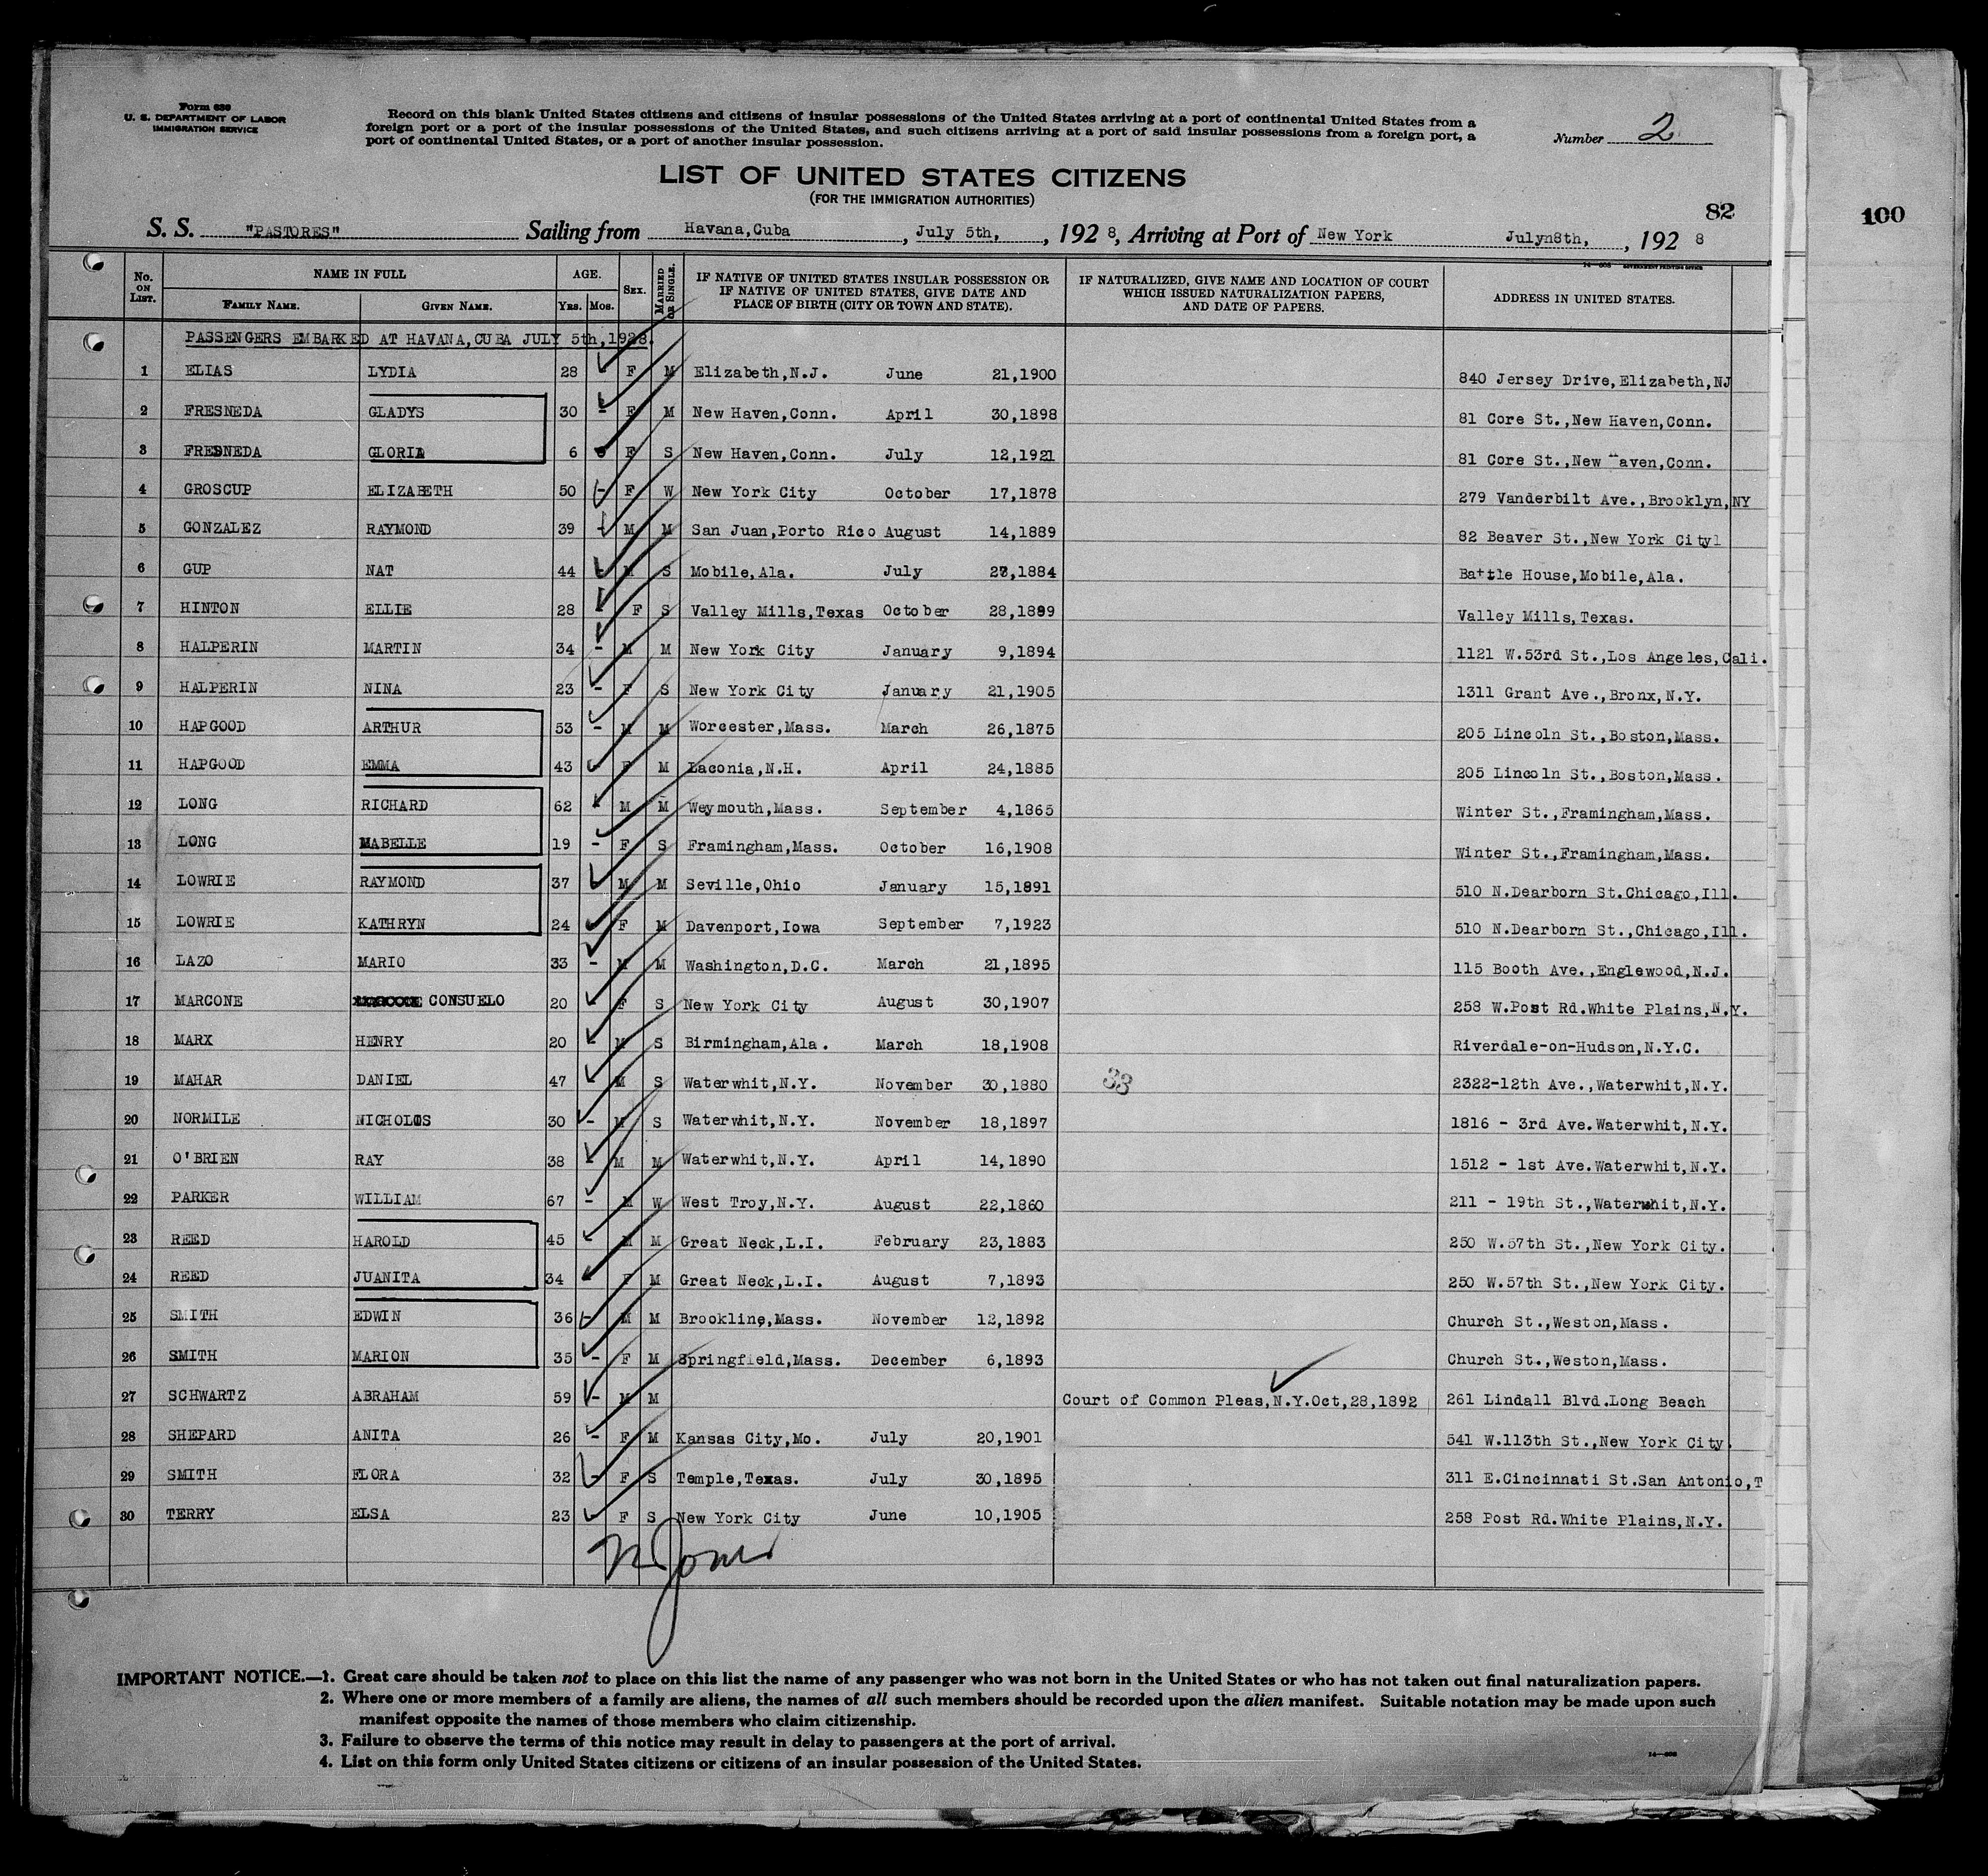 Form 630
U. S. DEPARTMENT OF LABOR
IMMIGRATION SERVICE
Record on this blank United States citizens and citizens of insular possessions of the United States arriving at a port of continental United States from a
foreign port or a port of the insular possessions of the United States, and such citizens arriving at a port of said insular possessions from a foreign port, a
port of continental United States, or a port of another insular possession.
Number 2
LIST OF UNITED STATES CITIZENS
(FOR THE IMMIGRATION AUTHORITIES)
82
100
S. S. "PASTORES" Sailing from Havana,Cuba , July 5th, , 192 8, Arriving at Port of New York Julyn8th, , 192 8
No. ON LIST. NAME IN FULL AGE. SEX. MARRIED OR SINGLE. IF NATIVE OF UNITED STATES INSULAR POSSESSION OR IF NATIVE OF UNITED STATES, GIVE DATE AND PLACE OF BIRTH (CITY OR TOWN AND STATE). IF NATURALIZED, GIVE NAME AND LOCATION OF COURT WHICH ISSUED NATURALIZATION PAPERS, AND DATE OF PAPERS. ADDRESS IN UNITED STATES.
FAMILY NAME. GIVEN NAME. YRS. MOS.
PASSENGERS EMBARKED AT HAVANA,CUBA JULY 5th,1928.
1 ELIAS LYDIA 28 F M Elizabeth,N.J. June 21,1900 840 Jersey Drive,Elizabeth,NJ
2 FRESNEDA GLADYS 30 - F M New Haven,Conn. April 30,1898 81 Core St.,New Haven,Conn.
3 FRESNEDA GLORIA 6 F S New Haven,Conn. July 12,1921 81 Core St.,New Haven,Conn.
4 GROSCUP ELIZABETH 50 - F W New York City October 17,1878 279 Vanderbilt Ave.,Brooklyn,NY
5 GONZALEZ RAYMOND 39 - M M San Juan,Porto Rico August 14,1889 82 Beaver St.,New York City
6 GUP NAT 44 - M S Mobile,Ala. July 1884 Battle House,Mobile,Ala.
7 HINTON ELLIE 28 - F S Valley Mills,Texas October 28,1899 Valley Mills,Texas.
8 HALPERIN MARTIN 34 - M M New York City January 9,1894 1121 W.53rd St.,Los Angeles,Cali.
9 HALPERIN NINA 23 - F S New York City January 21,1905 1311 Grant Ave.,Bronx,N.Y.
10 HAPGOOD ARTHUR 53 - M M Worcester,Mass. March 26,1875 205 Lincoln St.,Boston,Mass.
11 HAPGOOD EMMA 43 - F M Laconia,N.H. April 24,1885 205 Lincoln St.,Boston,Mass.
12 LONG RICHARD 62 - M M Weymouth,Mass. September 4,1865 Winter St.,Framingham,Mass.
13 LONG MABELLE 19 - F S Framingham,Mass. October 16,1908 Winter St.,Framingham,Mass.
14 LOWRIE RAYMOND 37 M M Seville,Ohio January 15,1891 510 N.Dearborn St.Chicago,Ill.
15 LOWRIE KATHRYN 24 - F M Davenport,Iowa September 7,1923 510 N.Dearborn St.,Chicago,Ill.
16 LAZO MARIO 33 - M M Washington,D.C. March 21,1895 115 Booth Ave.,Englewood,N.J.
17 MARCONE CONSUELO 20 - F S New York City August 30,1907 258 W.Post Rd.White Plains,N.Y.
18 MARX HENRY 20 - M S Birmingham,Ala. March 18,1908 Riverdale-on-Hudson,N.Y.C.
19 MAHAR DANIEL 47 - M S Waterwhit,N.Y. November 30,1880 33 2322-12th Ave.,Waterwhit,N.Y.
20 NORMILE NICHOLOS 30 - M S Waterwhit,N.Y. November 18,1897 1816 - 3rd Ave.Waterwhit,N.Y.
21 O'BRIEN RAY 38 - M M Waterwhit,N.Y. April 14,1890 1512 - 1st Ave.Waterwhit,N.Y.
22 PARKER WILLIAM 67 - M W West Troy,N.Y. August 22,1860 211 - 19th St.,Waterwhit,N.Y.
23 REED HAROLD 45 - M M Great Neck,L.I. February 23,1883 250 W.57th St.,New York City.
24 REED JUANITA 34 - F M Great Neck,L.I. August 7,1893 250 W.57th St.,New York City.
25 SMITH EDWIN 36 - M M Brookline,Mass. November 12,1892 Church St.,Weston,Mass.
26 SMITH MARION 35 - F M Springfield,Mass. December 6,1893 Church St.,Weston,Mass.
27 SCHWARTZ ABRAHAM 59 - M M Court of Common Pleas,N.Y.Oct,28,1892 261 Lindall Blvd.Long Beach
28 SHEPARD ANITA 26 - F M Kansas City,Mo. July 20,1901 541 W.113th St.,New York City.
29 SMITH FLORA 32 - F S Temple,Texas. July 30,1895 311 E.Cincinnati St.San Antonio,T
30 TERRY ELSA 23 - F S New York City June 10,1905 258 Post Rd.White Plains,N.Y.
IMPORTANT NOTICE.—1. Great care should be taken not to place on this list the name of any passenger who was not born in the United States or who has not taken out final naturalization papers.
2. Where one or more members of a family are aliens, the names of all such members should be recorded upon the alien manifest. Suitable notation may be made upon such
manifest opposite the names of those members who claim citizenship.
3. Failure to observe the terms of this notice may result in delay to passengers at the port of arrival.
4. List on this form only United States citizens or citizens of an insular possession of the United States.